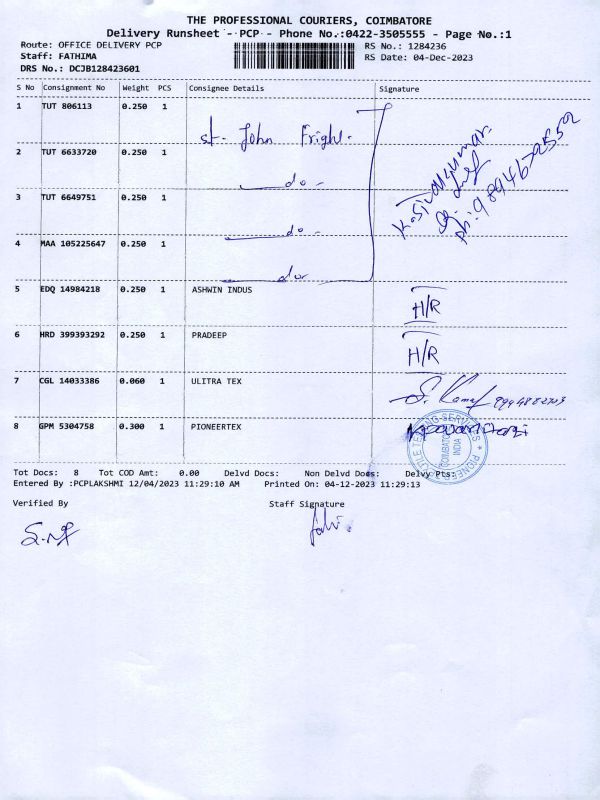 THE PROFESSIONAL COURIERS, COIMBATORE
Delivery Runsheet - PCP - Phone No.:0422-3505555 - Page No.:1
Route: OFFICE DELIVERY PCP RS No.: 1284236
Staff: FATHIMA RS Date: 04-Dec-2023
DRS No.: DCJB128423601
S No Consignment No Weight PCS Consignee Details Signature
1 TUT 806113 0.250 1
St. John Fright.
2 TUT 6633720 0.250 1
do
3 TUT 6649751 0.250 1
do
4 MAA 105225647 0.250 1
do
K. Sivakumar.
Ph: 9894672552
5 EDQ 14984218 0.250 1 ASHWIN INDUS H/R
6 HRD 399393292 0.250 1 PRADEEP H/R
7 CGL 14033386 0.060 1 ULITRA TEX
8 GPM 5304758 0.300 1 PIONEERTEX
COIMBATORE
INDIA
Tot Docs: 8 Tot COD Amt: 0.00 Delvd Docs: Non Delvd Docs: Delvy Pts:
Entered By :PCPLAKSHMI 12/04/2023 11:29:10 AM Printed On: 04-12-2023 11:29:13
Verified By Staff Signature